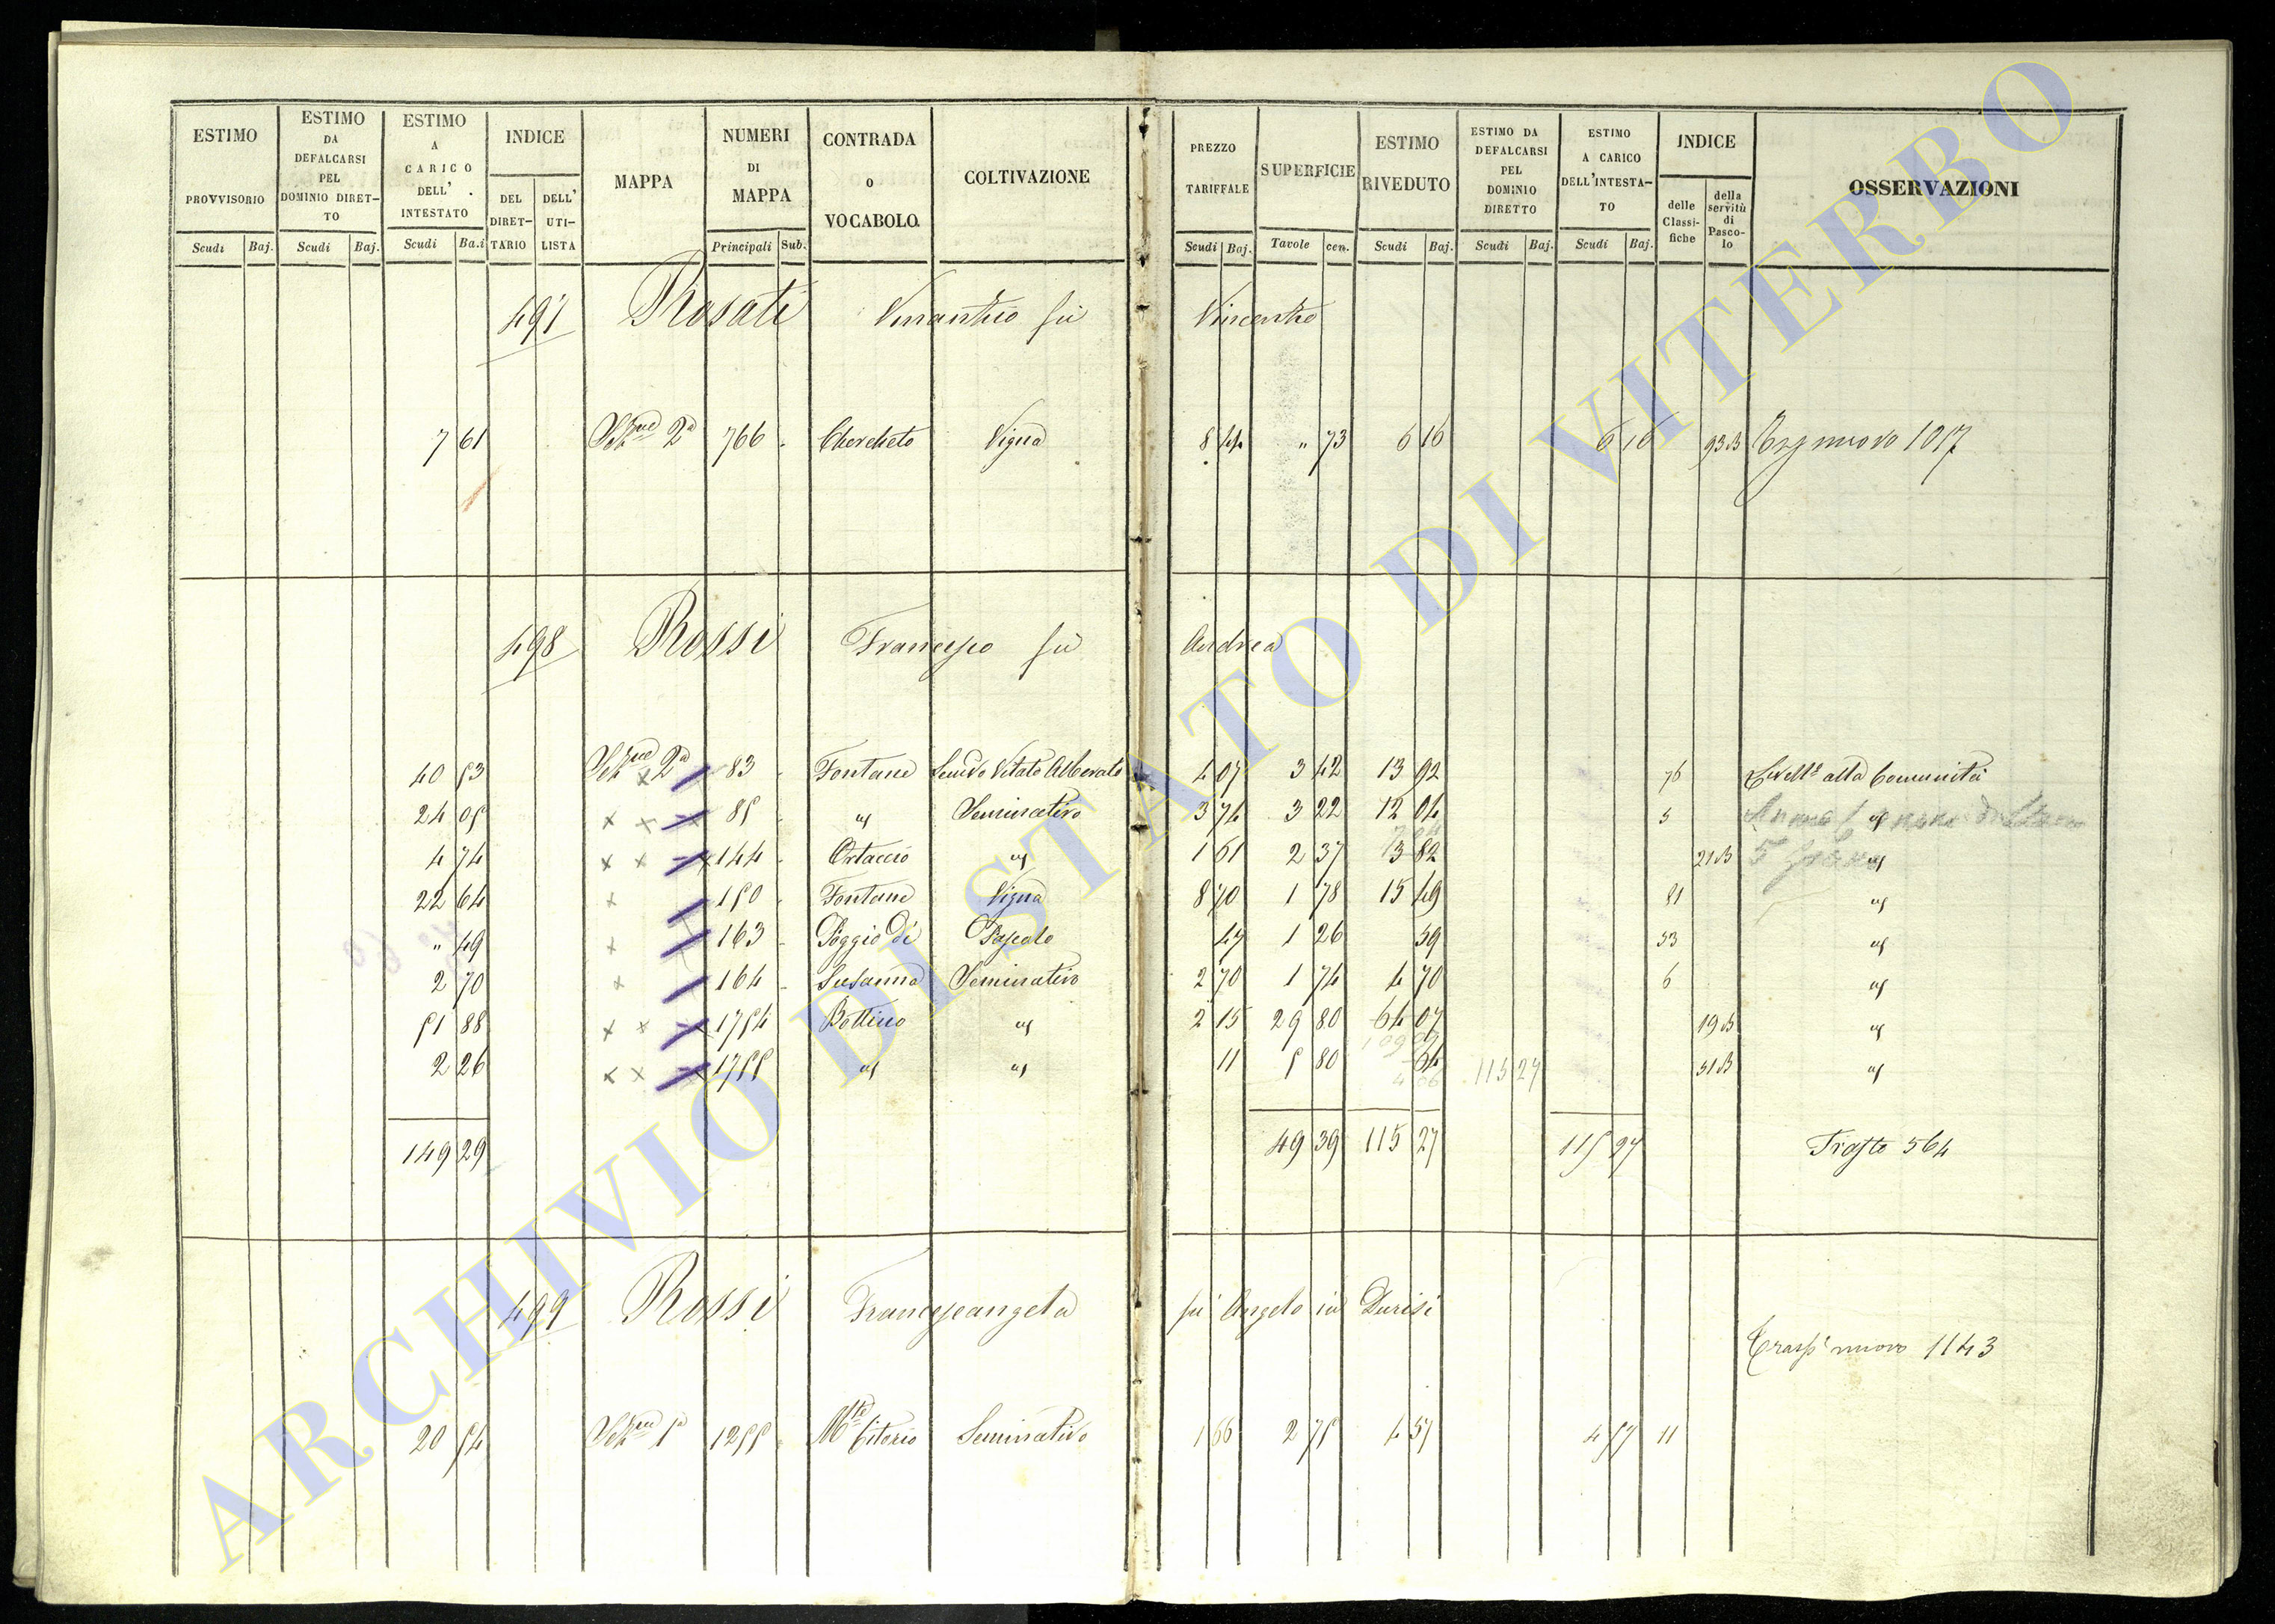 ESTIMO PROVVISORIO Scudi Baj. ESTIMO DA DEFALCARSI PEL DOMINIO DIRETTO Scudi Baj. ESTIMO A CARICO DELL' INTESTATO Scudi Ba.i INDICE DEL DIRETTARIO DELL' UTILISTA MAPPA NUMERI DI MAPPA Principali Sub. CONTRADA O VOCABOLO. COLTIVAZIONE PREZZO TARIFFALE Scudi Baj. SUPERFICIE Tavole cen. ESTIMO RIVEDUTO Scudi Baj. ESTIMO DA DEFALCARSI PEL DOMINIO DIRETTO Scudi Baj. ESTIMO A CARICO DELL'INTESTATO Scudi Baj. INDICE delle Classifiche della servitù di Pascolo OSSERVAZIONI
Rosati Venanzio fù Vincenzo
7 61 2a 766 Cercheto Vigna 8 44 " 73 6 16 6 16 93B nuovo 1017
498 Rossi Francesco fù Andrea
40 53 2a 83 Fontane Vitato Alberato 4 07 3 42 13 92 76 alla Comunità
24 05 85 Seminativo 3 74 3 22 12 04 5
4 74 144 Ortaccio 1 61 2 37 3 82 21B
22 64 150 Fontane Vigna 8 70 1 78 15 49 81
" 49 163 Poggio di Pascolo 47 1 26 59 53
2 70 164 Susanna Seminativo 2 70 1 74 4 70 6
51 88 1754 Bottino 2 15 29 80 64 07 19B
2 26 1755 11 5 80 64 115 27 51B
149 29 49 39 115 27 115 27 564
499 Rossi Francescangela fù Angelo in Durisi
nuovo 1143
20 54 1255 Mte Citorio Seminativo 1 66 2 75 4 57 4 57 11
ARCHIVIO DI STATO DI VITERBO